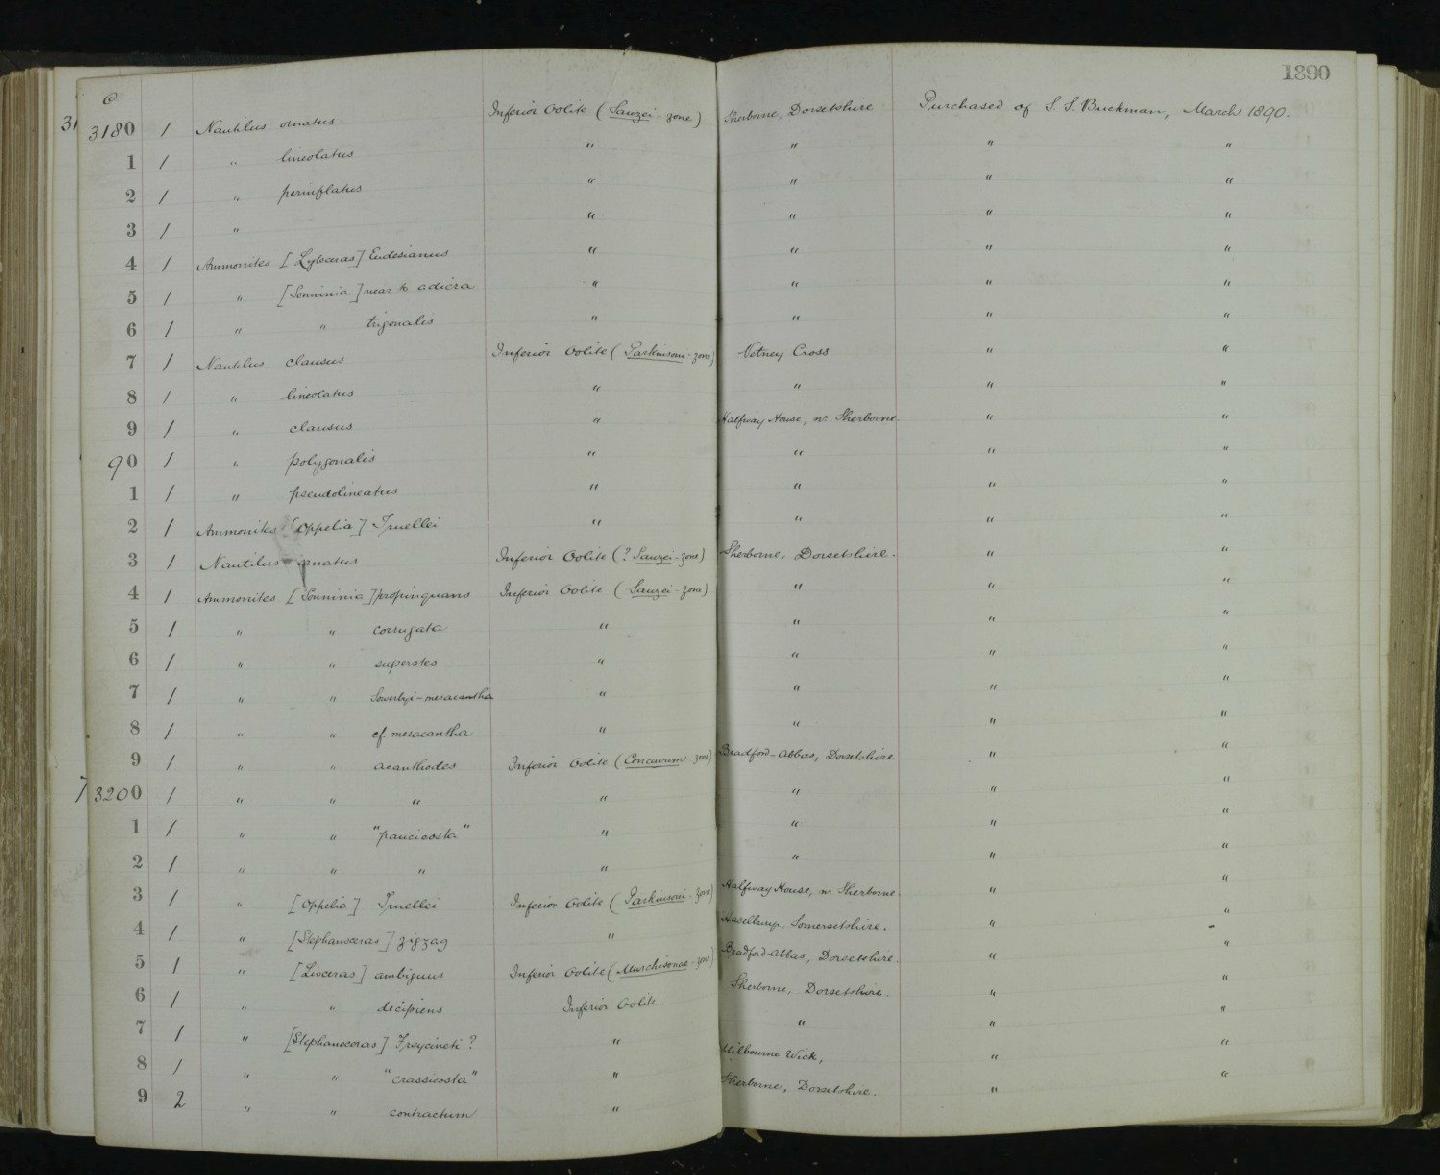 1890
C
31
3180 1 Nautilus ornatus Inferior Oolite (Sauzei-zone) Sherborne, Dorsetshire Purchased of S. S. Buckman, March 1890.
1 1 " lineolatus " " " "
2 1 " perinflatus " " " "
3 1 " " " " "
4 1 Ammonites [Lytoceras] Eudesianus " " " "
5 1 " [Sonninia] near to adicra " " " "
6 1 " " trigonalis " " " "
7 1 Nautilus clausus Inferior Oolite (Parkinsoni-zone) Vetney Cross " "
8 1 " lineolatus " " " "
9 1 " clausus " Halfway House, nr. Sherborne. " "
90 1 " polygonalis " " " "
1 1 " pseudolineatus " " " "
2 1 Ammonites [Oppelia] Truellei " " " "
3 1 Nautilus ornatus Inferior Oolite (? Sauzei-zone) Sherborne, Dorsetshire. " "
4 1 Ammonites [Sonninia] propinquans Inferior Oolite (Sauzei-zone) " " "
5 1 " " corrugata " " " "
6 1 " " superstes " " " "
7 1 " " Sowerbyi-mesacantha " " " "
8 1 " " cf mesacantha " " " "
9 1 " " acanthodes Inferior Oolite (Concavum zone) Bradford-Abbas, Dorsetshire " "
7 3200 1 " " " " " " "
1 1 " " "paucicosta" " " " "
2 1 " " " " " " "
3 1 " [Oppelia] Truellei Inferior Oolite (Parkinsoni-zone) Halfway House, nr. Sherborne. " "
4 1 " [Stephanoceras] zigzag " Haselbury, Somersetshire. " "
5 1 " [Lioceras] ambiguus Inferior Oolite (Murchisonae-zone) Bradford-Abbas, Dorsetshire. " "
6 1 " " decipiens Inferior Oolite Sherborne, Dorsetshire. " "
7 1 " [Stephanoceras] Freycineti? " " " "
8 1 " " "crassicosta" " Milborne Wick, " "
9 2 " " contractum " Sherborne, Dorsetshire. " "